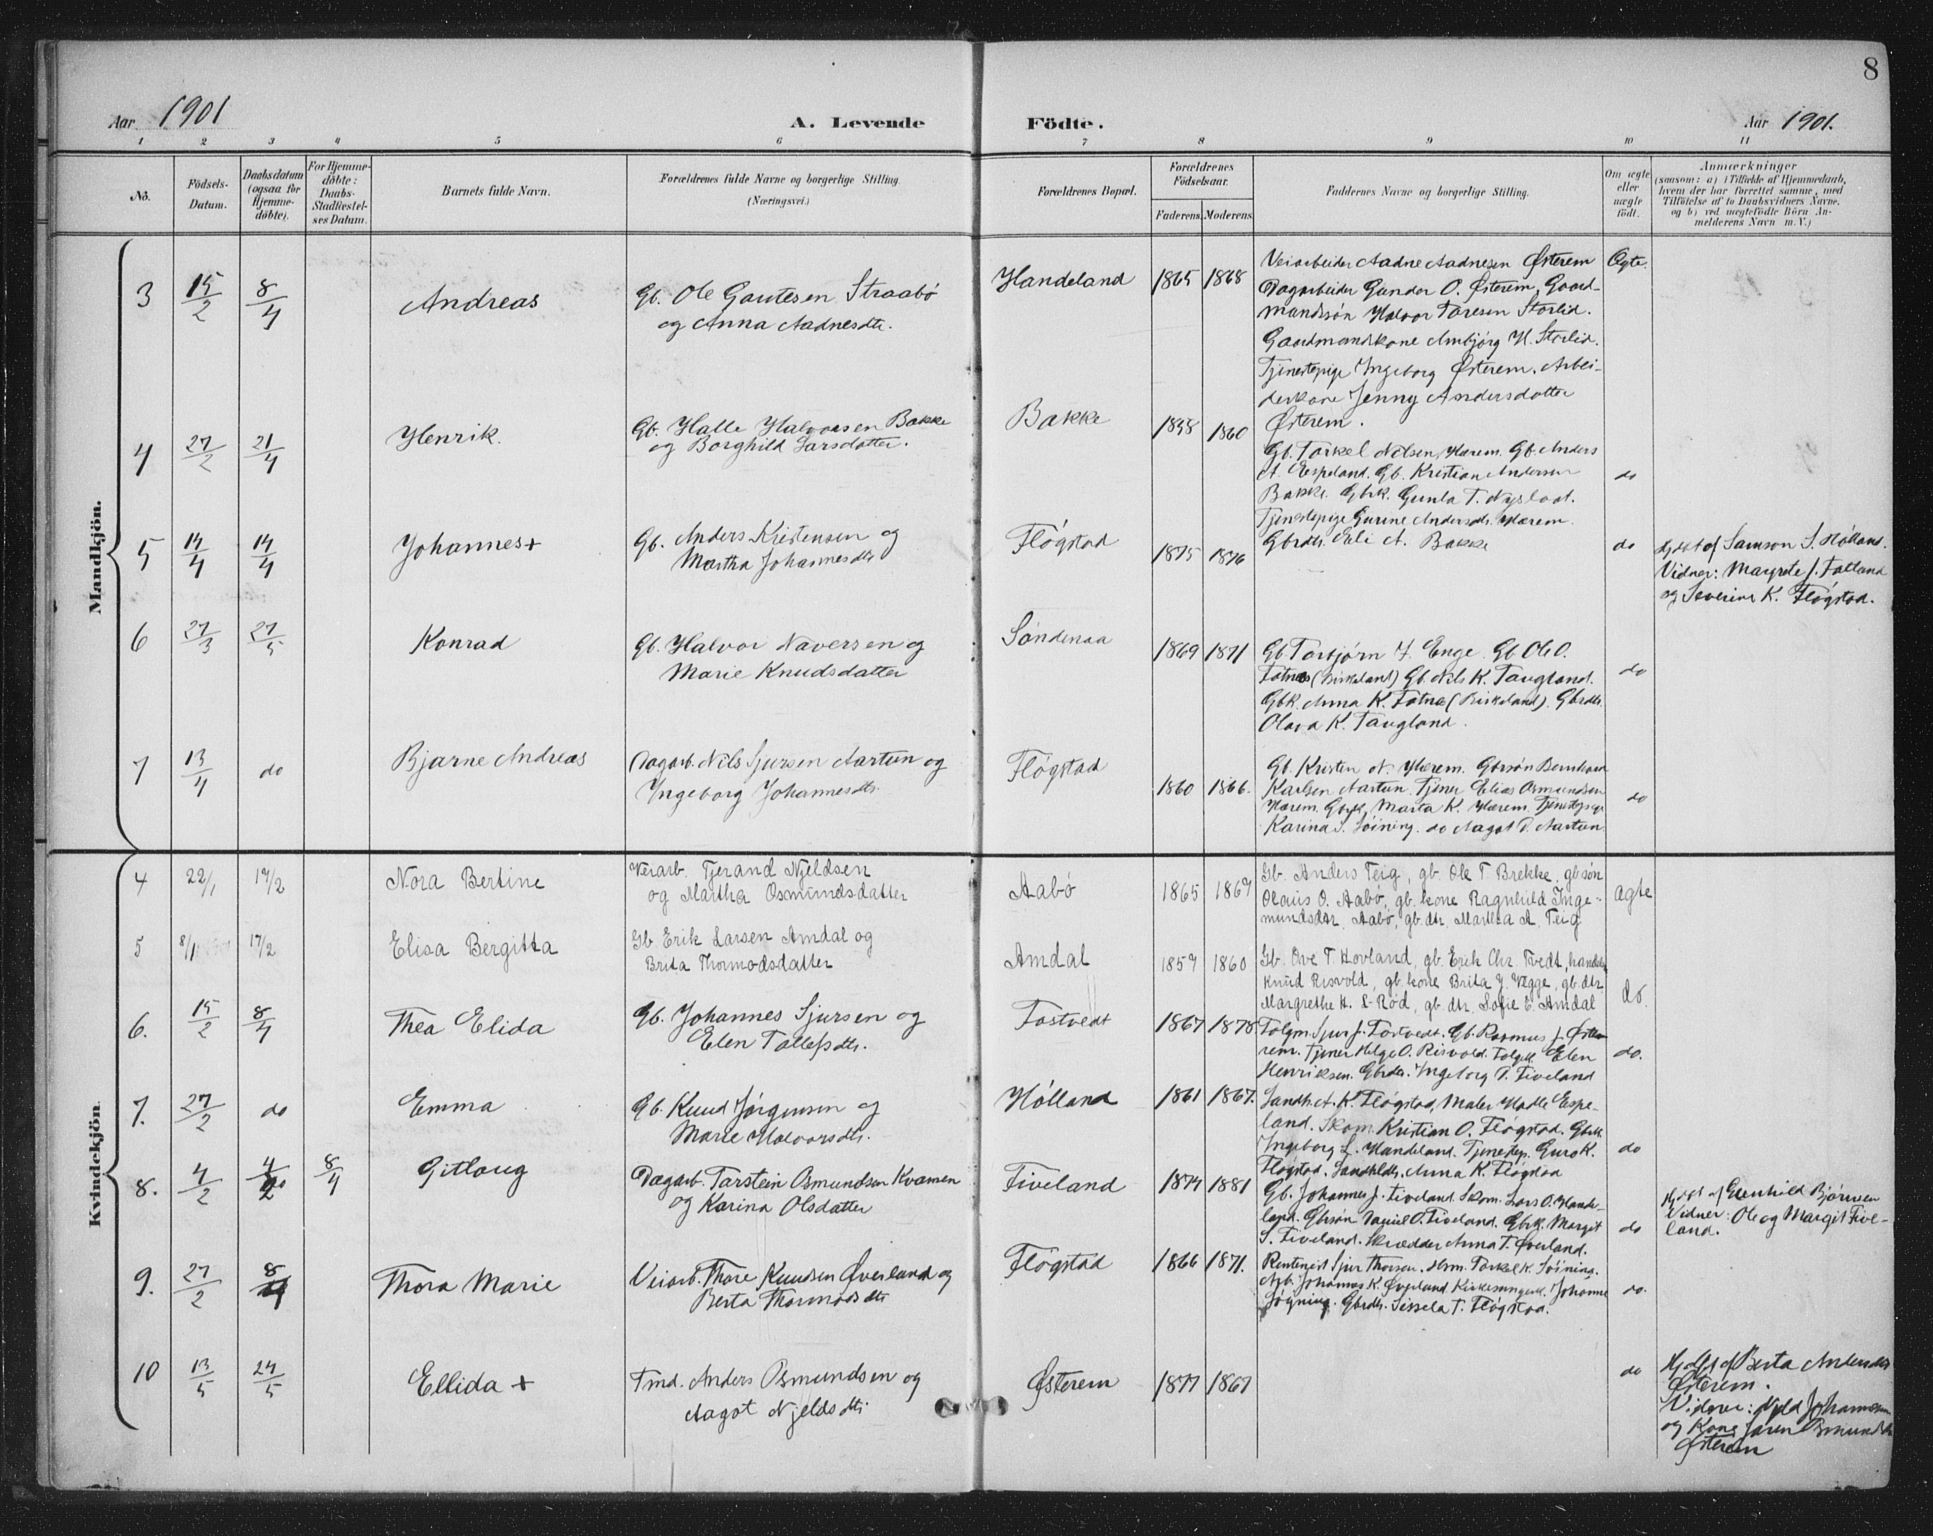 8
Aar 1901 A. Levende Födte. Aar 1901.
1 2 3 4 5 6 7 8 9 10 11
No. Födsels-Datum. Daabsdatum (ogsaa for Hjemmedöbte). For Hjemmedöbte: Daabs-Stadfæstelses Datum. Barnets fulde Navn. Forældrenes fulde Navne og borgerlige Stilling. (Næringsvei.) Forældrenes Bopæl. Forældrenes Födselsaar. Faderens. Moderens. Faddernes Navne og borgerlige Stilling. Om ægte eller uægte födt. Anmærkninger
(saasom: a) i Tilfælde af Hjemmedaab, hvem der har forrettet samme, med Tilföielse af to Daabsvidners Navne, og b) ved uægtefödte Börn Anmelderens Navn m. V.)
Mandkjön.
3 15/2 8/4 Andreas Gb. Ole Gautesen Straabø
og Anna Aadnesdtr. Handeland 1865 1868 Veiarbeider Aadne Aadnesen Østerem Ægte.
Dagarbeider Gunder O. Østerem, Gaard-
mandssøn Halvor Toresen Storlid.
Gaardmandskone Anbjørg H. Storlid.
Tjenestepige Ingeborg Østerem. Arbei-
derkone Jenny Andersdatter
Østerem.
4 27/2 21/4 Henrik. Gb. Halle Halvorsen Bakke
og Borghild Larsdatter. Bakke 1860
Gb. Torkel Nilsen, Hærem. Gb. Anders
A. Espeland. Gb. Kristian Andersen do
Bakke. Gbrk. Gunla T.
Tjenestepige Gurine Andersdtr. Hærem.
Gbrdtr. Eli A. Bakke
5 14/4 14/4 Johannes + Gb. Anders Kristensen og
Martha Johannesdtr Fløgstad 1875 1876 do Hjdøbt af Samson S. Hølland.
Vidner: Margrete J. Fatland
og Severine K. Fløgstad.
6 27/3 27/5 Konrad Gb. Halvor Naversen og
Marie Knudsdatter Søndenaa 1869 1871 Gb Torbjørn Enge. Gb Ole O.
(Birkeland) Gb. Nils K. Taugland. do
Gbk. Anna K. (Birkeland). Gbrdtr.
Olava K. Taugland.
7 13/4 do Bjarne Andreas Dagarb. Nils Sjursen Aartun og
Ingeborg Johannesdtr. Fløgstad 1860 1866. Gb. Kristen N. Hærem. Gbrsøn Bernhard
Karlsen Aartun. Tjener Elias Osmundsen
Hærem. Gbrk. Marta K. Hærem. Tjenestepige do
Karina S. Søining. do Aagot D. Aartun
Kvindekjön.
4 22/1 17/2 Nora Bertine Veiarb. Tjerand Njeldsen
og Martha Osmundsdatter Aabø 1865 1867 Gb. Anders Teig, gb. Ole T Brekke, gb søn
Olaus O. Aabø, gb. kone Ragnhild Inge- ægte
mundsdtr. Aabø, gb. dtr. Martha A. Teig
5 8/1 17/2 Elisa Bergitta Gb Erik Larsen Amdal og
Brita Thormodsdatter Amdal 1857 1860 Gb. Ove T. Hovland, gb. Erik Chr. Tvedt, handels
Knud Risvold, gb. kone Brita J. Vegge, gb. dtr
Margrethe H. L-Rød, gb. dtr. Sofie E. Amdal do.
6. 15/2 8/4 Thea Elida Gb. Johannes Sjursen og
Elen Tollefsdtr. Tostvedt 1867 1878 Folgm. Sjur J. Tostvedt. Gb. Rasmus J. Øste-
rem. Tjener Helge O. Risvold. Folgk. Elen do.
Henriksen. Gbrdtr. Ingeborg T. Tiveland
7. 27/2 do Emma Gb. Knud Jørgensen og
Marie Halvorsdtr. Hølland 1861 1867. Landh. A. K. Fløgstad, Maler Hadle Espe-
land. Skom. Kristian O. Fløgstad. Gbrk.
Ingeborg L. Handeland. Tjenestep. Guro K. do
Fløgstad. Landhldtr. Anna K. Fløgstad
8. 4/2 8/4 Gitlaug Dagarb. Torstein Osmundsen Kvamen
og Karina Olsdatter Tiveland 1874 1881 Gb. Johannes J. Tiveland. Skom. Lars O. Hande-
land. Gbrsøn Daniel O. Tiveland. Gbrk. Margit do
S. Tiveland. Skrædder Anna T. Øverland. Hjdøbt af Gunhild Bjørnsen
Vidner: Ole og Margit Tive-
land.
9. 27/2 8/4 Thora Marie Veiarb. Thore Knudsen Øverland og
Berta Thormodsdtr Fløgstad 1866 1871. Rentenist Sjur Thorsen. Hsm. Torkel K. Søining.
Johannes K. Øverland Kirkesangerk. Johanne do.
Søyning. Gbrdtr. Sissela T. Fløgstad.
10 13/5 24/5 Ellida + Fmd. Anders Osmundsen og
Aagot Njeldsdtr Østerem 1877 1867 do Hjdøbt af Berta Andersdtr
Østerem.
Vidner: Njeld Johannesen
og Kone Joren Osmundsdtr
Østerem